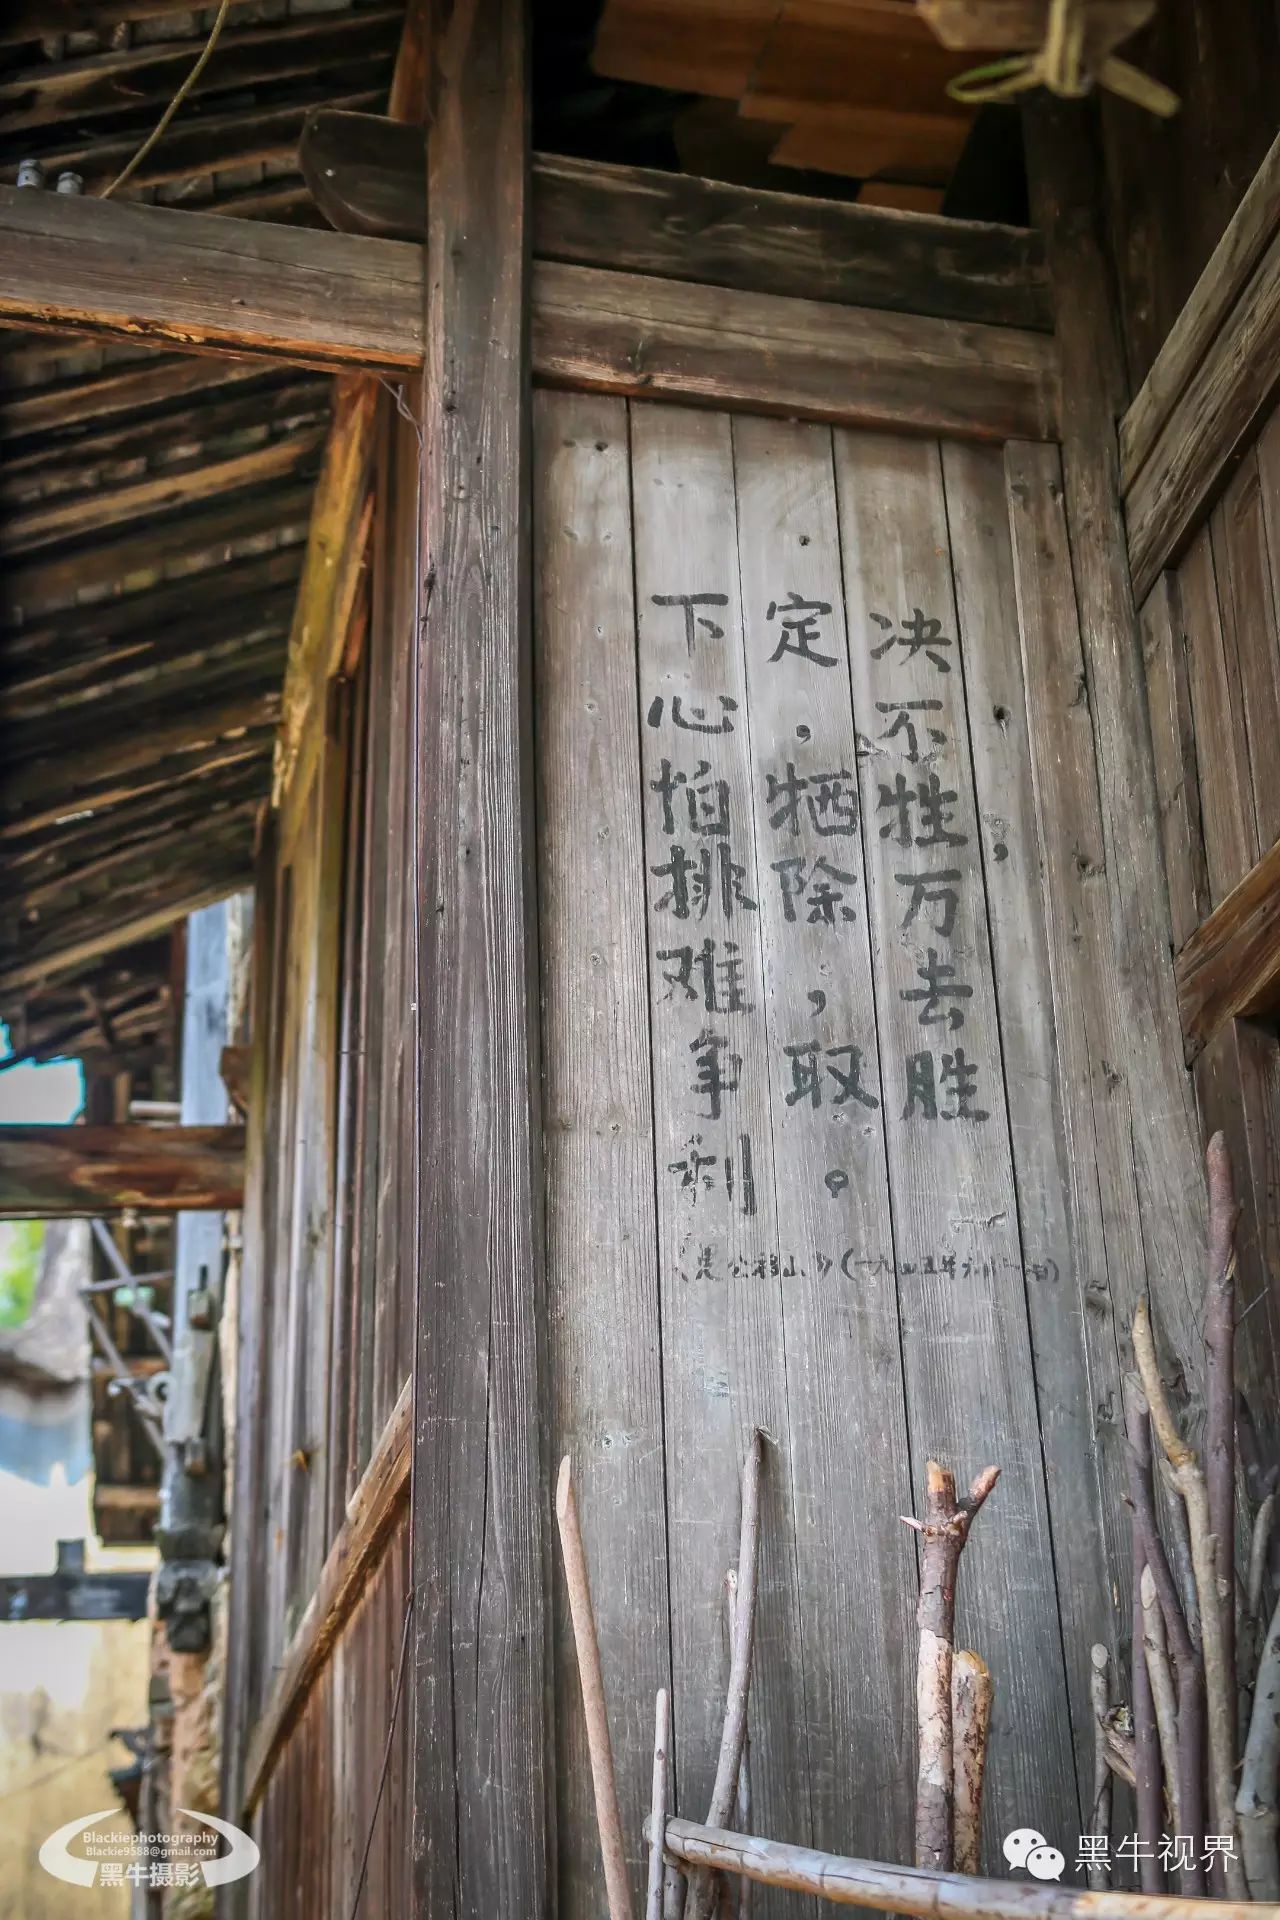 下定决
心，不
怕牺牲，
排除万
难，去
争取胜
利。
《愚公移山》(一九四五年六月十一日)
Blackiephotography
Blackie9588@gmail.com
黑牛摄影
黑牛视界